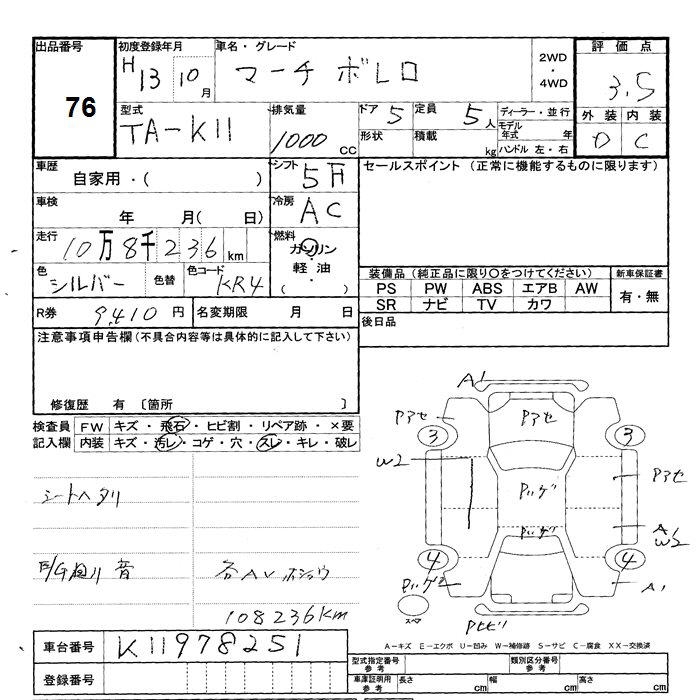 出品番号
76
初度登録年月
H13 10月
車名・グレード
マーチ ボレロ
2WD
・
4WD
評価点
3.5
外装 内装
D C
型式
TA-K11
排気量
1000 CC
ドア 5
形状
定員 5人
積載 kg
ディーラー・並行
モデル年式 年
ハンドル 左・右
車歴
自家用・( )
シフト
5F
セールスポイント (正常に機能するものに限ります)
車検
年 月( 日)
冷房
AC
走行
10万8千236km
燃料
ガソリン
・
軽油
・
( )
色
シルバー
色替
色コード
KR4
装備品 (純正品に限り○をつけてください)
PS PW ABS エアB AW
SR ナビ TV カワ
新車保証書
有・無
R券 9,410円
名変期限 月 日
後日品
注意事項申告欄 (不具合内容等は具体的に記入して下さい)
修復歴 有 〔箇所 〕
検査員
記入欄
FW キズ・飛石・ヒビ割・リペア跡・×要
内装 キズ・汚レ・コゲ・穴・スレ・キレ・破レ
シートヘタリ
音
各AV ホショウ
108236km
A1
Pアセ
Pアセ
3
3
W2
Pハゲ
Pアセ
Pハゲ
A1
W2
4
4
Pハゲ2
A1
スペア
Pヒビリ
A-キズ E-エクボ U-凹み W-補修跡 S-サビ C-腐食 XX-交換済
車台番号
K11978251
登録番号
型式指定番号
参考
類別区分番号
参考
車庫証明用
参考
長さ cm
幅 cm
高さ cm